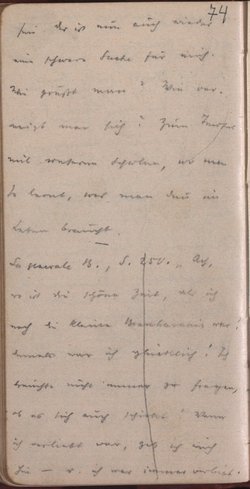 74
sein. Das ist nun auch wieder
eine schwere Sache für mich.
Wie grüßt man? Wie ver-
neigt man sich? Zum Teufel
mit unseren Schulen, wo man
so lernt, was man nie im
Leben braucht.
La générale B., S. 250. "Ach,
wo ist die schöne Zeit, als ich
noch die kleine war,
damals war ich glücklich! Ich
brauchte nicht immer zu fragen,
ob es sich auch schickt! Wenn
ich verliebt war, gab ich mich
hin – u. ich war immer verliebt.